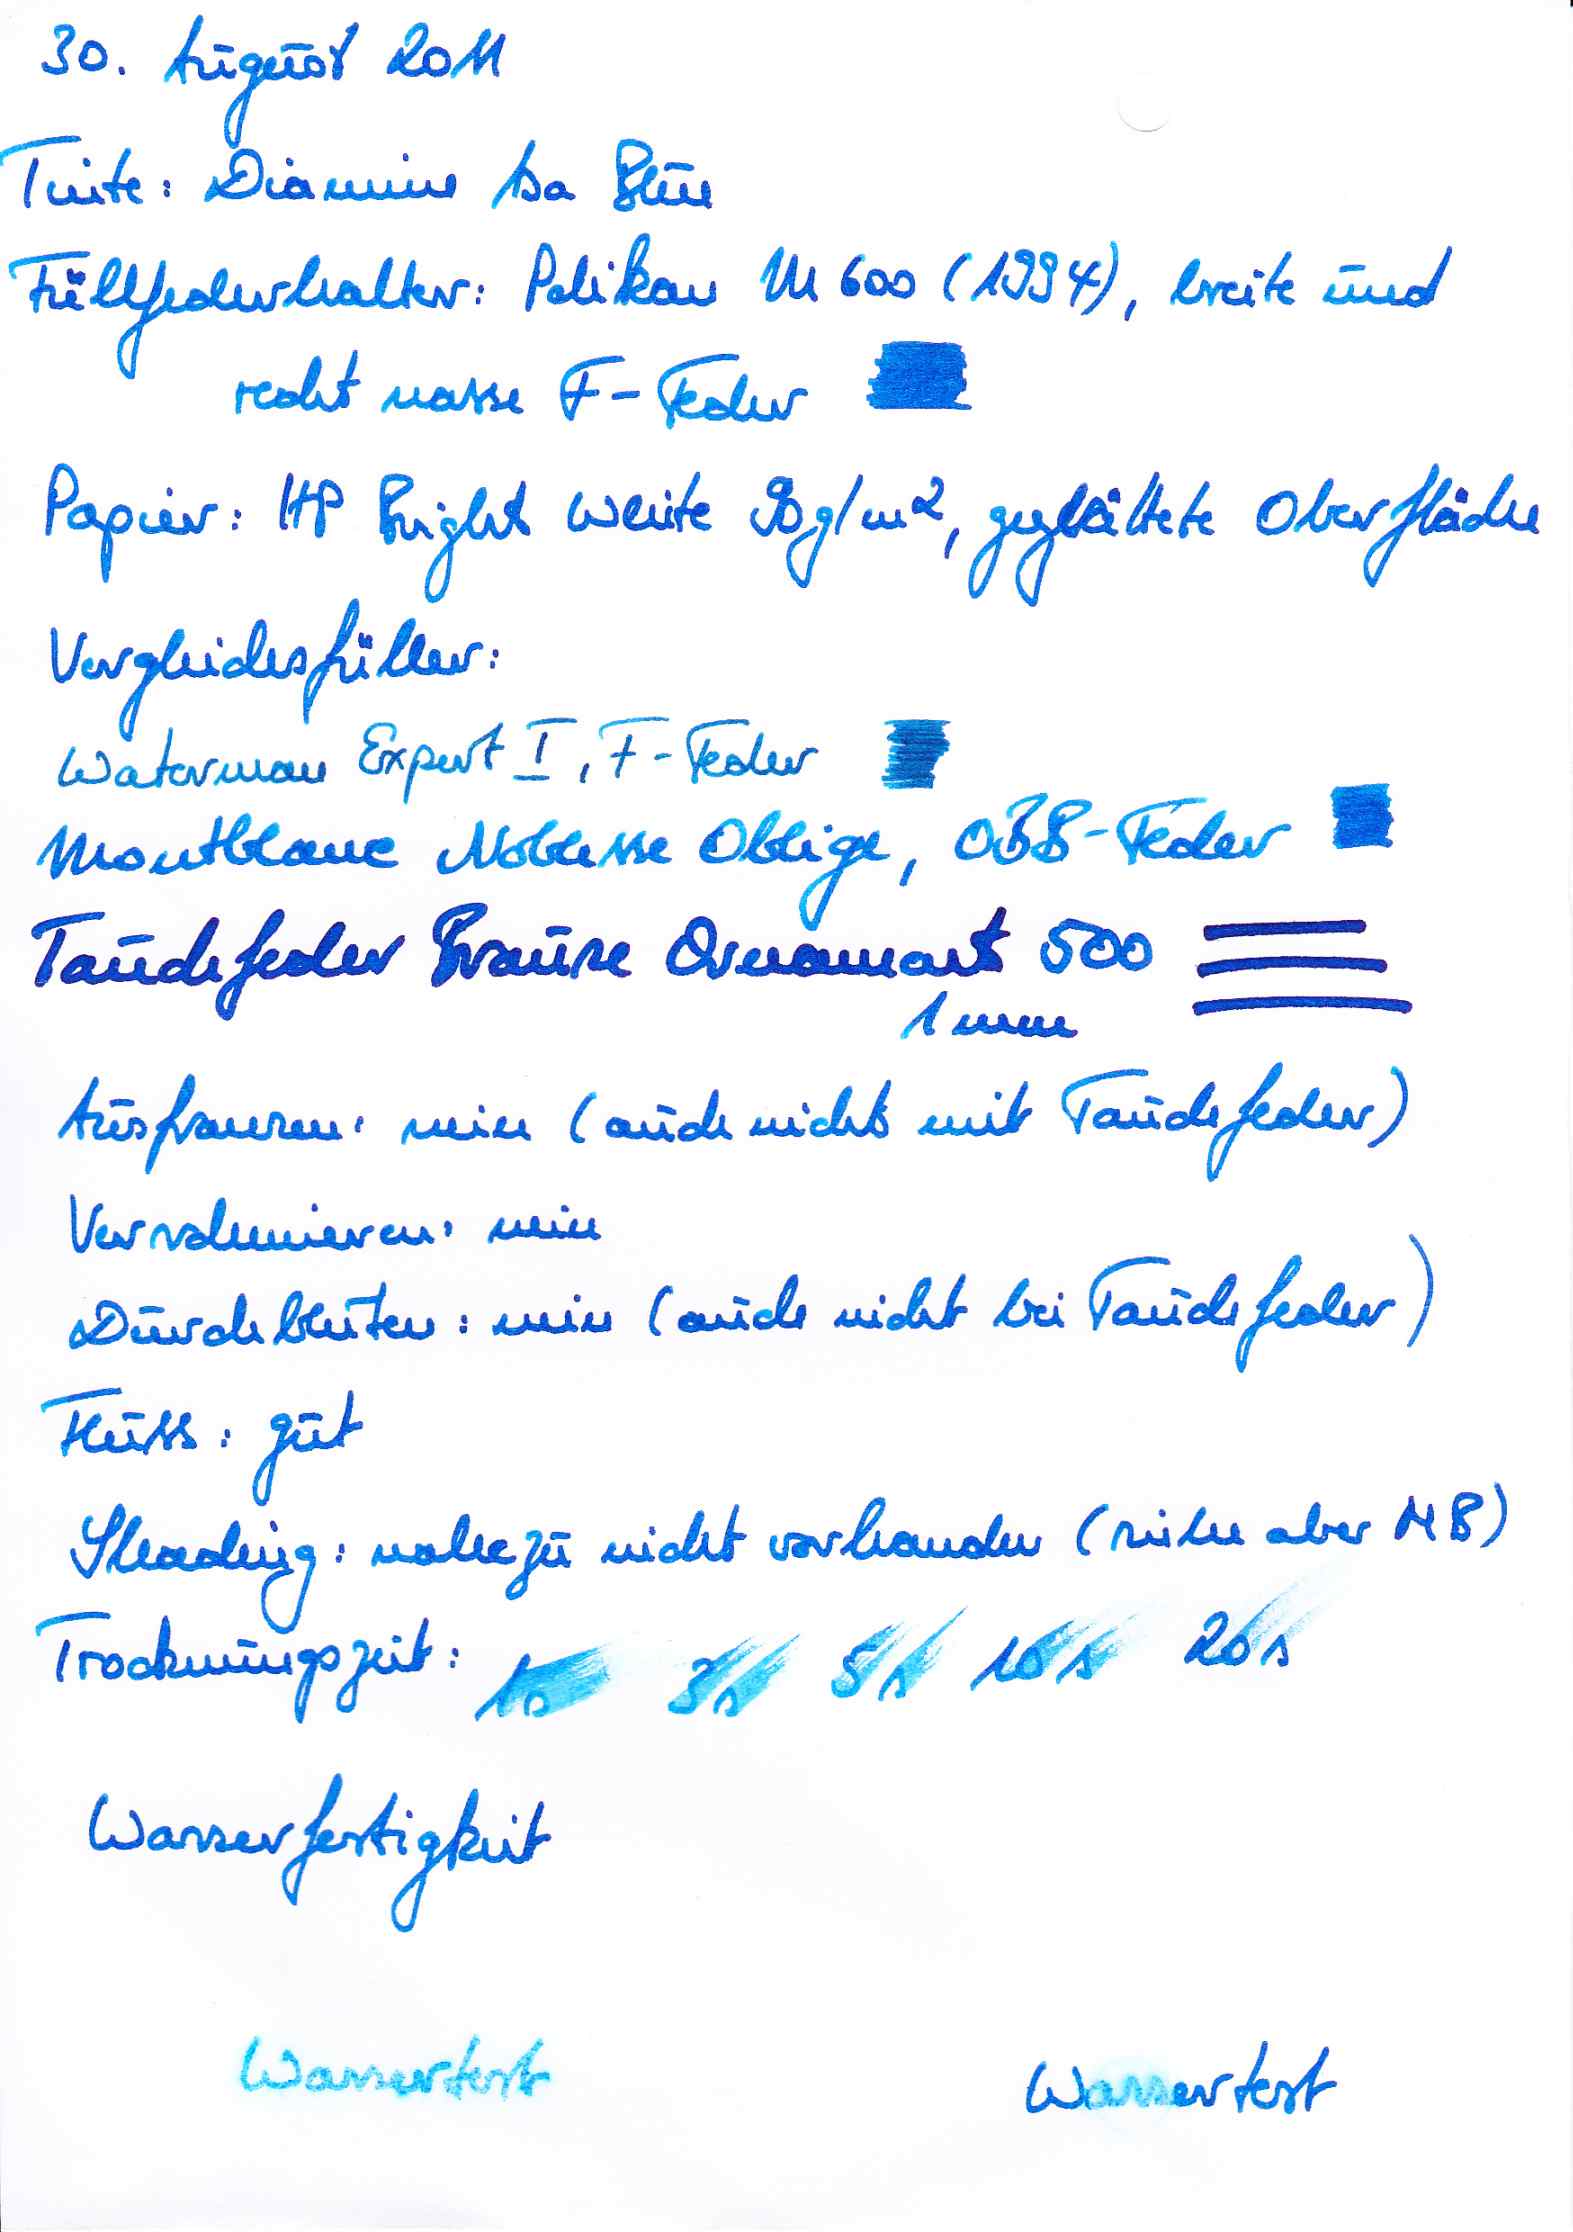 30. August 2011
Tinte: Diamine Asa Blue
Füllfederhalter: Pelikan M 600 (1994), breite und
recht nasse F-Feder
Papier: HP Bright White 90g/m², geglättete Oberfläche
Vergleichsfüller:
Waterman Expert I, F-Feder
Montblanc Noblesse Oblige, OBB-Feder
Tauchfeder Brause Ornament 500
1 mm
Ausfransen: nein (auch nicht mit Tauchfeder)
Verschmieren: nein
Durchbluten: nein (auch nicht bei Tauchfeder)
Fluss: gut
Shading: nahezu nicht vorhanden (siehe aber MB)
Trocknungszeit: 1s 3s 5s 10s 20s
Wasserfestigkeit
Wassertest Wassertest